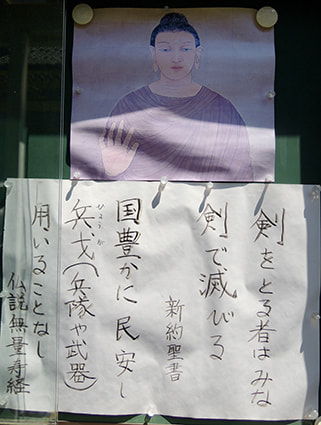 剣をとる者はみな
剣で滅びる
新約聖書
国豊かに民安し
兵戈(兵隊や武器)
ひょうが
用いることなし
仏説無量寿経